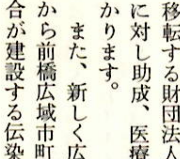 移転する財団法人
に対し助成、医療
かります。
また、新しく広
から前橋広域市町
合が建設する伝染